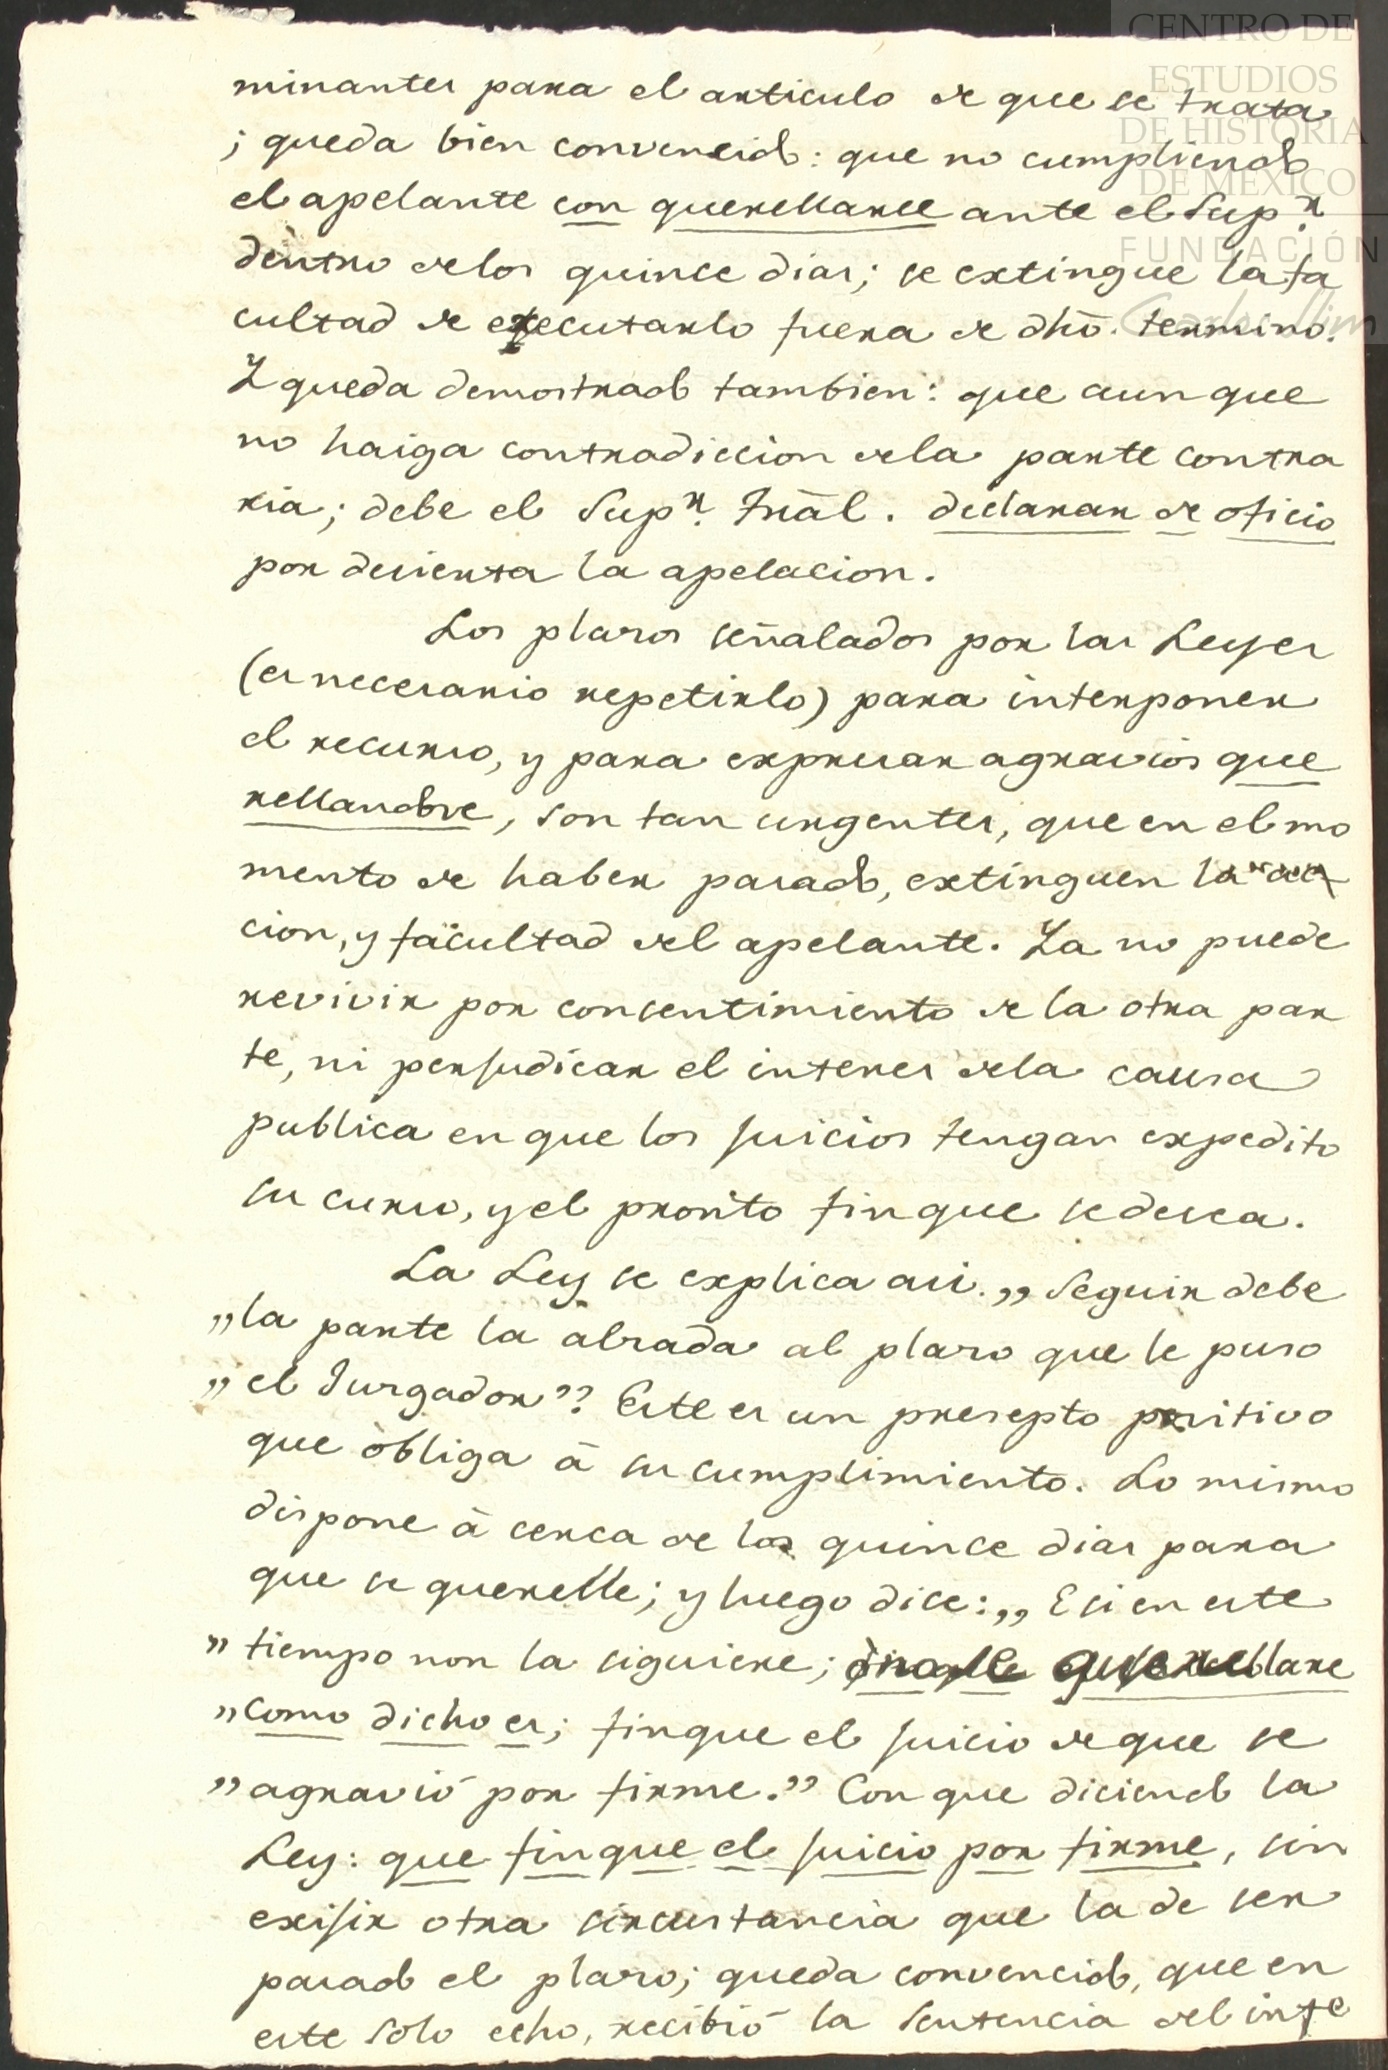 CENTRO DE
ESTUDIOS
DE HISTORIA
DE MEXICO
FUNDACIÓN
Carlos Slim
minantes para el articulo de que se trata
; queda bien convencido: que no cumpliendo
el apelante con querellarce ante el Supr.
dentro delos quince dias; se extingue la fa
cultad de executarlo fuera de dhō. termino.
Y queda demostrado tambien: que aunque
no haiga contradiccion dela parte contra
ria; debe el Supr. Trāl. declarar de oficio
por decierta la apelacion.
Los plasos señalados por las Leyes
(es necesario repetirlo) para interponer
el recurso, y para expresar agravios que
rellandose, son tan urgentes, que en el mo
mento de haber pasado, extinguen la ac
cion, y facultad del apelante. Ya no puede
revivir por concentimiento de la otra par
te, ni perjudicar el interes dela causa
publica en que los juicios tengan expedito
su curso, y el pronto fin que se desea.
La Ley se explica asi. „ Seguir debe
„ la parte la alsada al plaso que le puso
„ el Jusgador” Este es un presepto positivo
que òbliga à su cumplimiento. Lo mismo
dispone à cerca de los quince dias para
que se querelle; y luego dice: „ E si en este
„ tiempo non la siguiere; ò no se querellare
„ como dicho es; finque el juicio de que se
„ agravió por firme.” Con que diciendo la
Ley: que finque el juicio por firme, sin
exijir otra circustancia que la de ser
pasado el plaso; queda convencido, que en
este solo echo, recibió la sentencia del infe